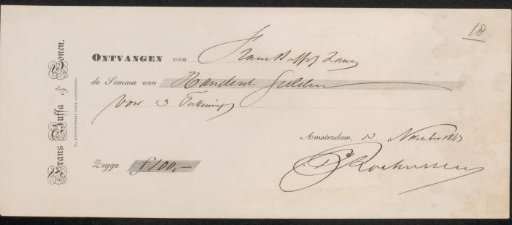 18
Frans Buffa & Zonen.
ONTVANGEN van Frans Buffa & Zonen
de Somma van Honderd Gulden
Voor 3 Teekeningen
Amsterdam, 13 November 1863
C Rochussen
Zegge f100,-